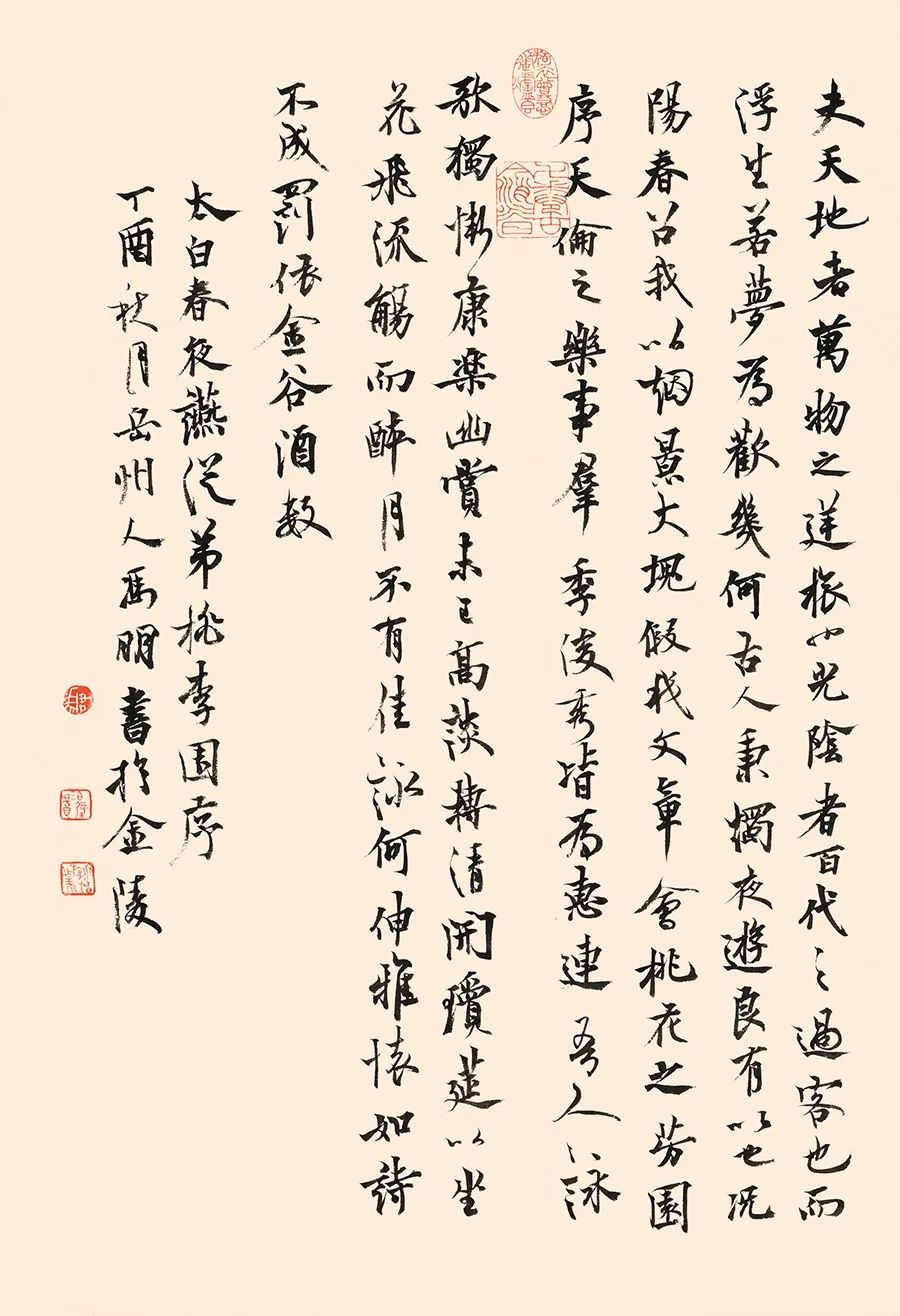 夫天地者萬物之逆旅也光陰者百代之過客也而
浮生若夢為歡幾何古人秉燭夜遊良有以也況
陽春召我以烟景大塊假我文章會桃花之芳園
序天倫之樂事羣季俊秀皆為惠連吾人詠
歌獨慚康樂幽賞未已高談轉清開瓊筵以坐
花飛流觴而醉月不有佳詠何伸雅懷如詩
不成罰依金谷酒數
太白春夜讌從弟桃李園序
丁酉秋月岳州人馮明書於金陵